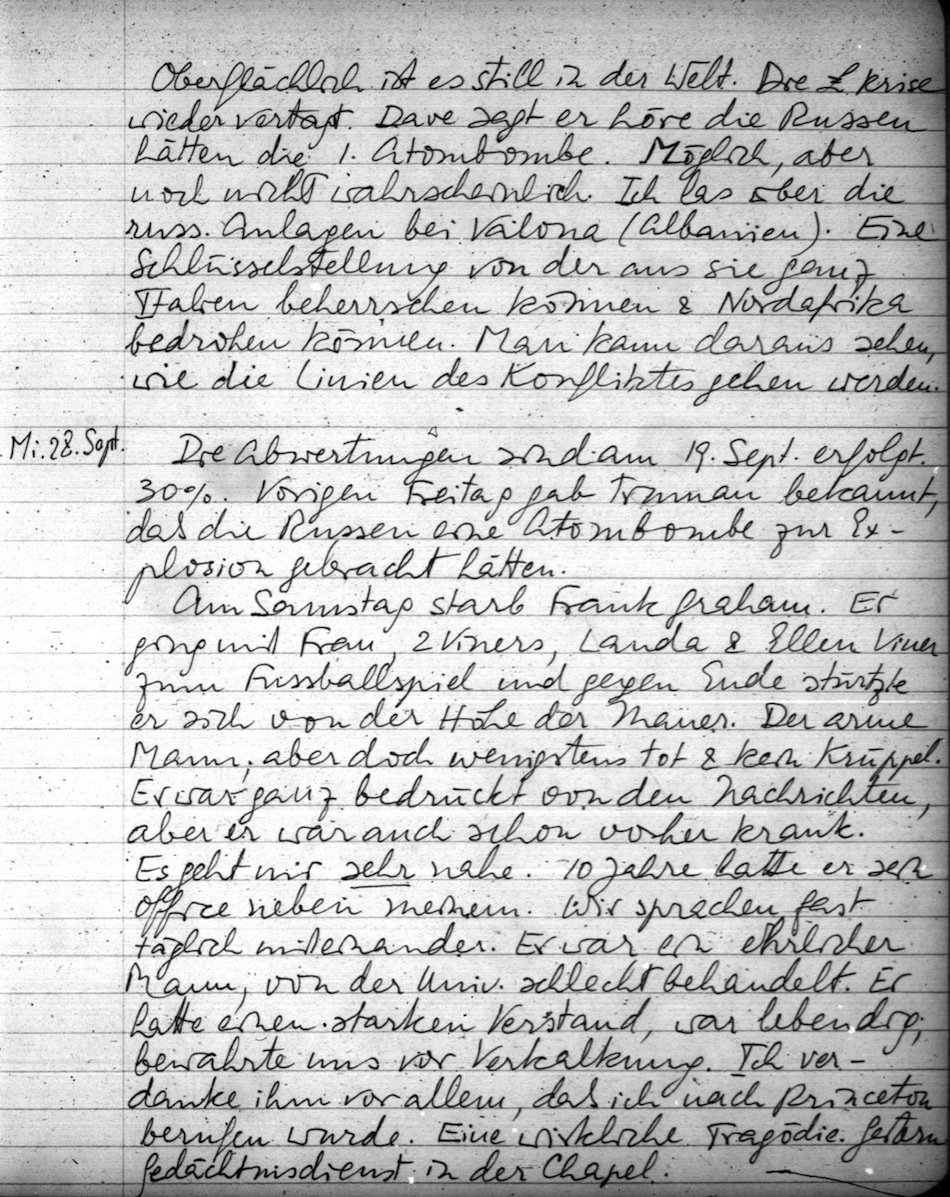 Oberflächlich ist es still in der Welt. Die £ krise
wieder vertagt. Dave sagt er höre die Russen
hätten die 1. Atombombe. Möglich, aber
noch nicht wahrscheinlich. Ich las über die
russ. Anlagen bei Valona (Albanien). Eine
Schlüsselstellung von der aus sie ganz
Italien beherrschen können & Nordafrika
bedrohen können. Man kann daraus sehen,
wie die Linien des Konfliktes gehen werden.
Mi. 28. Sept. Die Abwertungen sind am 19. Sept. erfolgt.
30%. Vorigen Freitag gab Truman bekannt,
dass die Russen eine Atombombe zur Ex-
plosion gebracht hätten.
Am Samstag starb Frank Graham. Er
ging mit Frau, 2 Viners, Landa & Ellen Viner
zum Fussballspiel und gegen Ende stürzte
er sich von der Höhe der Mauer. Der arme
Mann; aber doch wenigstens tot & kein Krüppel.
Er war ganz bedrückt von den Nachrichten,
aber er war auch schon vorher krank.
Es geht mir sehr nahe. 10 Jahre hatte er sein
office neben meinem. Wir sprachen fast
täglich miteinander. Er war ein ehrlicher
Mann, von der Univ. schlecht behandelt. Er
hatte einen starken Verstand, war lebendig;
bewahrte uns vor Verkalkung. Ich ver-
danke ihm vor allem, dass ich nach Princeton
berufen wurde. Eine wirkliche Tragödie. Gestern
Gedächtnisdienst in der Chapel.